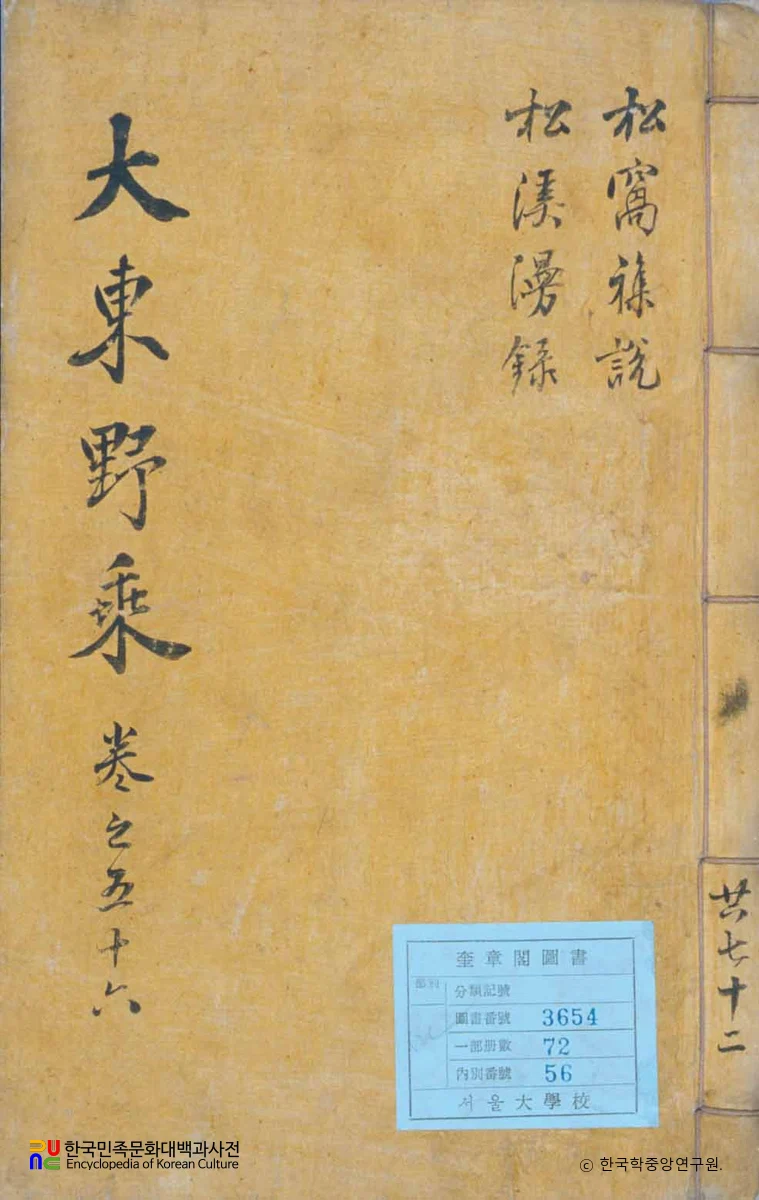 松窩雜說
松溪漫錄
大東野乘 卷之五十六
共七十二
奎章閣圖書
部別
分類記號
圖書番號 3654
一部冊數 72
內別番號 56
서울大學校
한국민족문화대백과사전
Encyclopedia of Korean Culture
© 한국학중앙연구원.